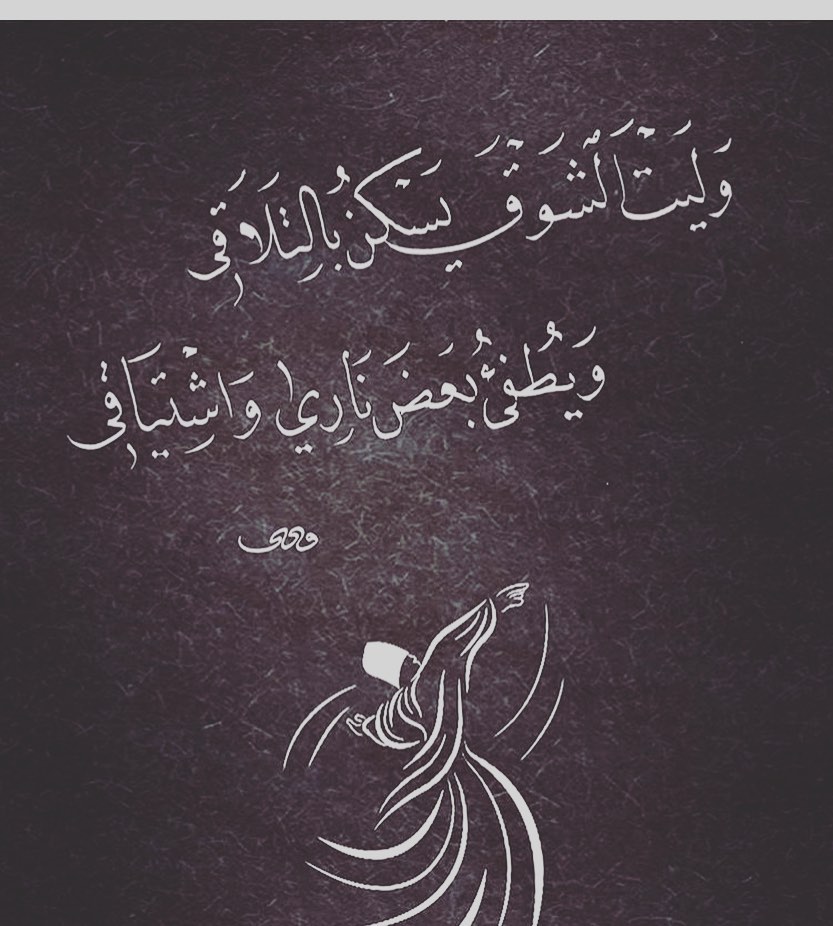 وَلَيْتَ الشَّوْقَ يَسْكُنُ بِالتَّلَاقِي
وَيُطْفِئُ بَعْضَ نَارِي وَاشْتِيَاقِي